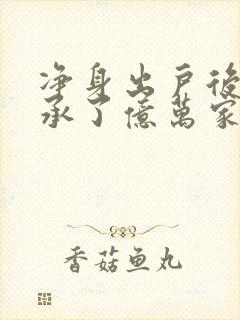 净身出戸後
承了億萬家
香菇鱼丸